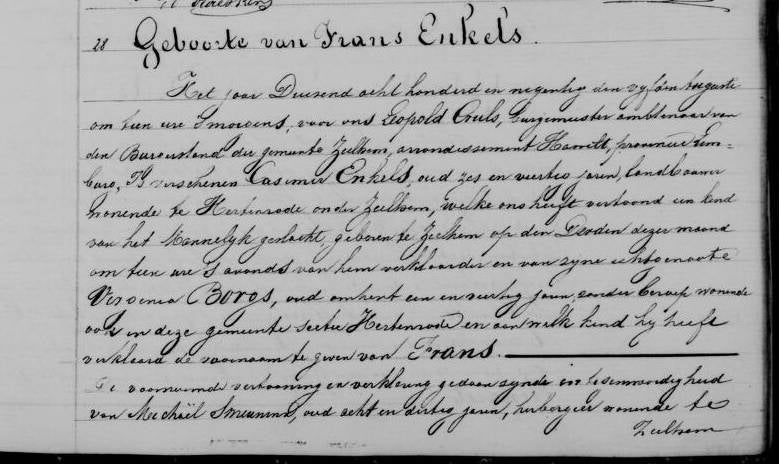 28 Geboorte van Frans Enkels.
Het jaar Duusend acht honderd en negentig den vyfden augusti
om tien ure smorgens, voor ons Leopold Cruls, burgemeester ambtenaar van
den Burgerstand der gemeente Zeelhem, arrondissement Hasselt, provincie Lim-
burg, Is verschenen Casimir Enkels, oud zes en veertig jaren, landbouwer
wonende te Hertenrode onder Zeelhem, welke ons heeft vertoond een kind
van het Mannelyk geslacht, geboren te Zeelhem op den Derden dezer maand
om tien ure s'avonds van hem verklaarder en van zyne echtgenoote
Virginia Borgs, oud omtrent een en veertig jaren, zonder beroep wonende
ook in deze gemeente sectie Hertenrode en aan welk kind hy heeft
verklaard de voornaam te geven van Frans.
De voornoemde vertooning en verklaring gedaan zynde in tegenwoordigheid
van Michaël, oud acht en dertig jaren, herbergier wonende te
Zeelhem